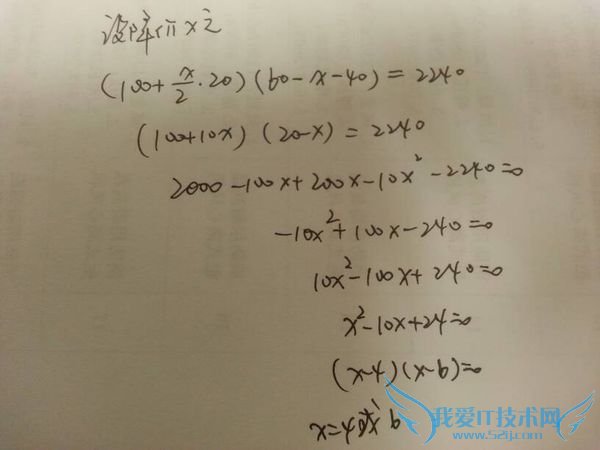 设降价x元
(100+x/2·20)(60-x-40)=2240
(100+10x)(20-x)=2240
2000-100x+200x-10x²-2240=0
-10x²+100x-240=0
10x²-100x+240=0
x²-10x+24=0
(x-4)(x-6)=0
x=4或x=6
我爱IT技术网
www.52ij.com